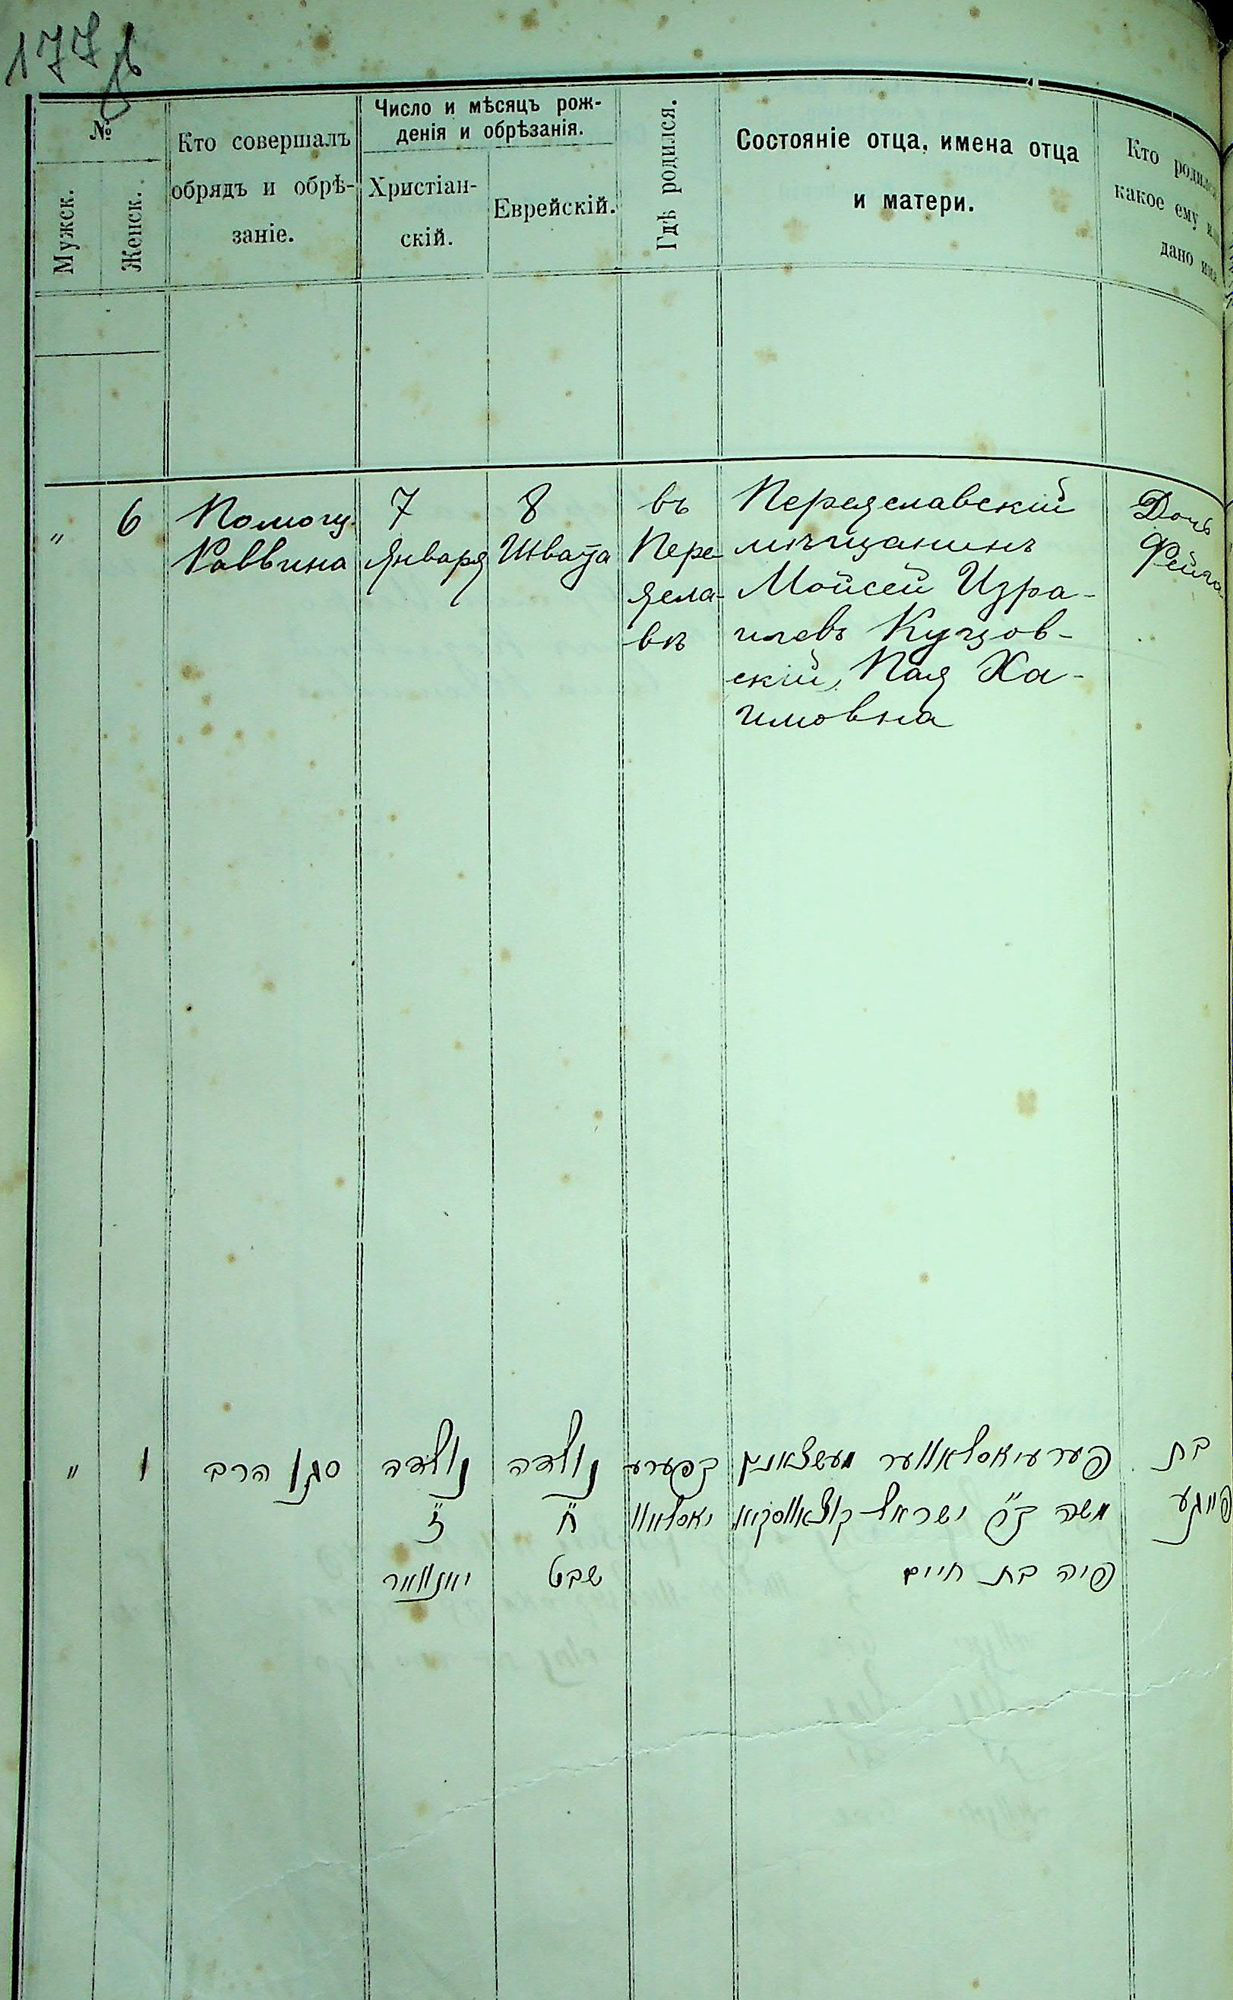 177
№
Мужск.
Женск.
Кто совершалъ
обрядъ и обрѣ-
заніе.
Число и мѣсяцъ рож-
денія и обрѣзанія.
Христіан-
скій.
Еврейскій.
Гдѣ родился.
Состояніе отца, имена отца
и матери.
Кто
какое ему
дано
„
6
Помощ.
Раввина
7
Января
8
Швата
въ
Пере-
ясла-
вѣ
Переяславскій
мѣщанинъ
Мойсей Изра-
илевъ Куцов-
скій, Пая Ха-
имовна
Дочь
Фейга
„
ו
סגן הרב
נולדה
ז״
יאנוואר
נולדה
ח״
שבט
בפערע
יאסלאוו
פערעיאסלאווער מעשצאנין
משה ב״ר ישראל קוצאווסקיא
פיה בת חיים
בת
פייגע